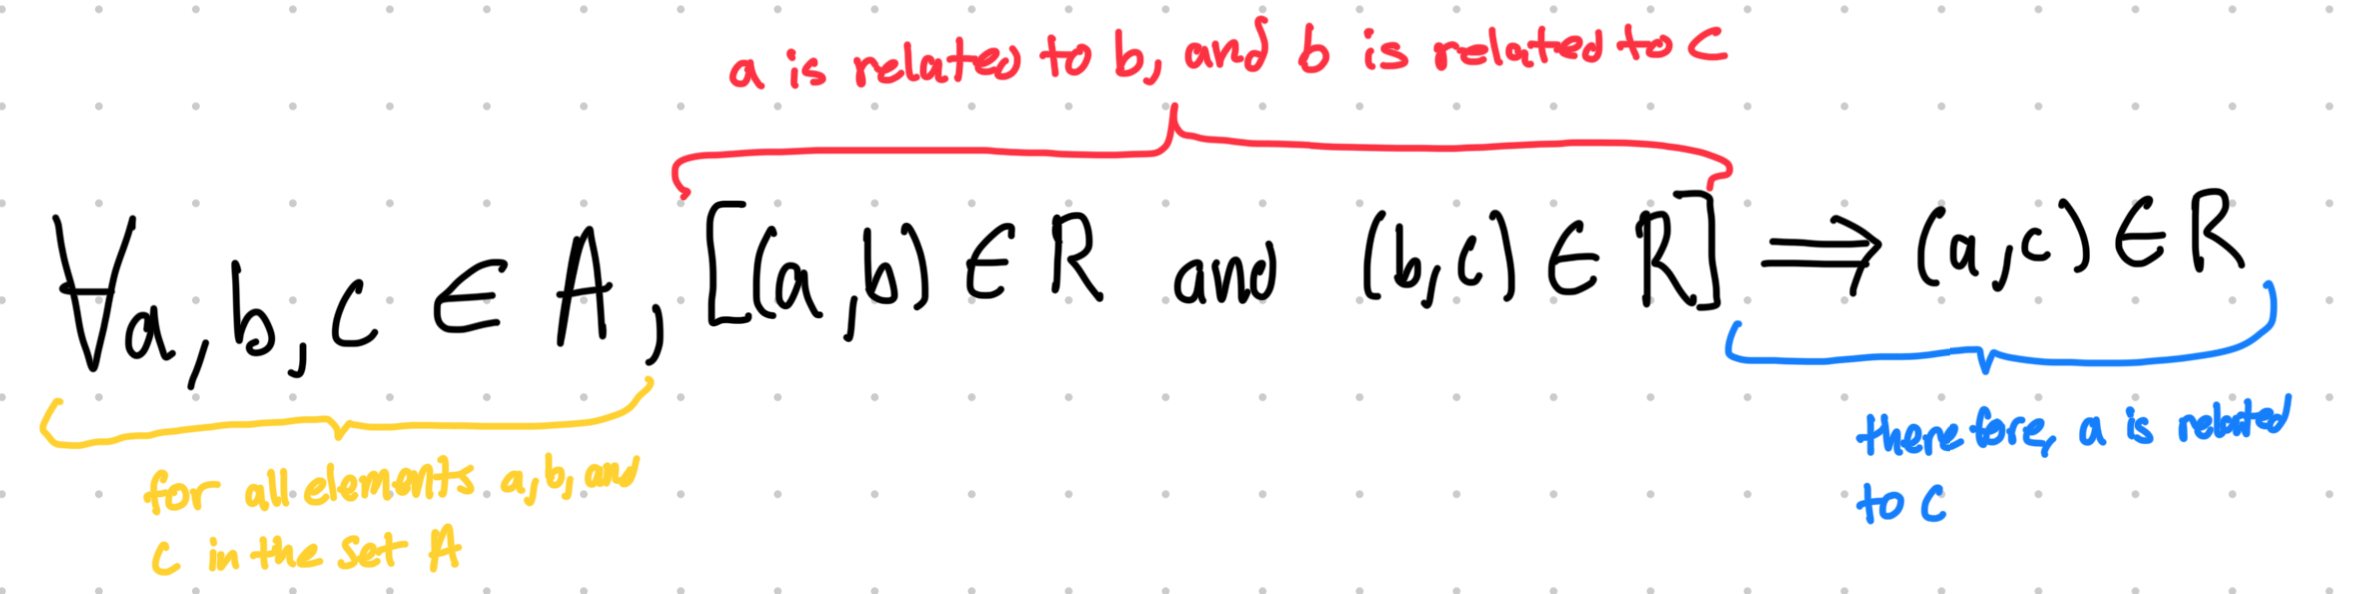 a is related to b, and b is related to c
∀a, b, c ∈ A, [(a,b) ∈ R and (b,c) ∈ R] ⟹ (a,c) ∈ R
for all elements a, b, and
c in the set A
therefore, a is related
to c